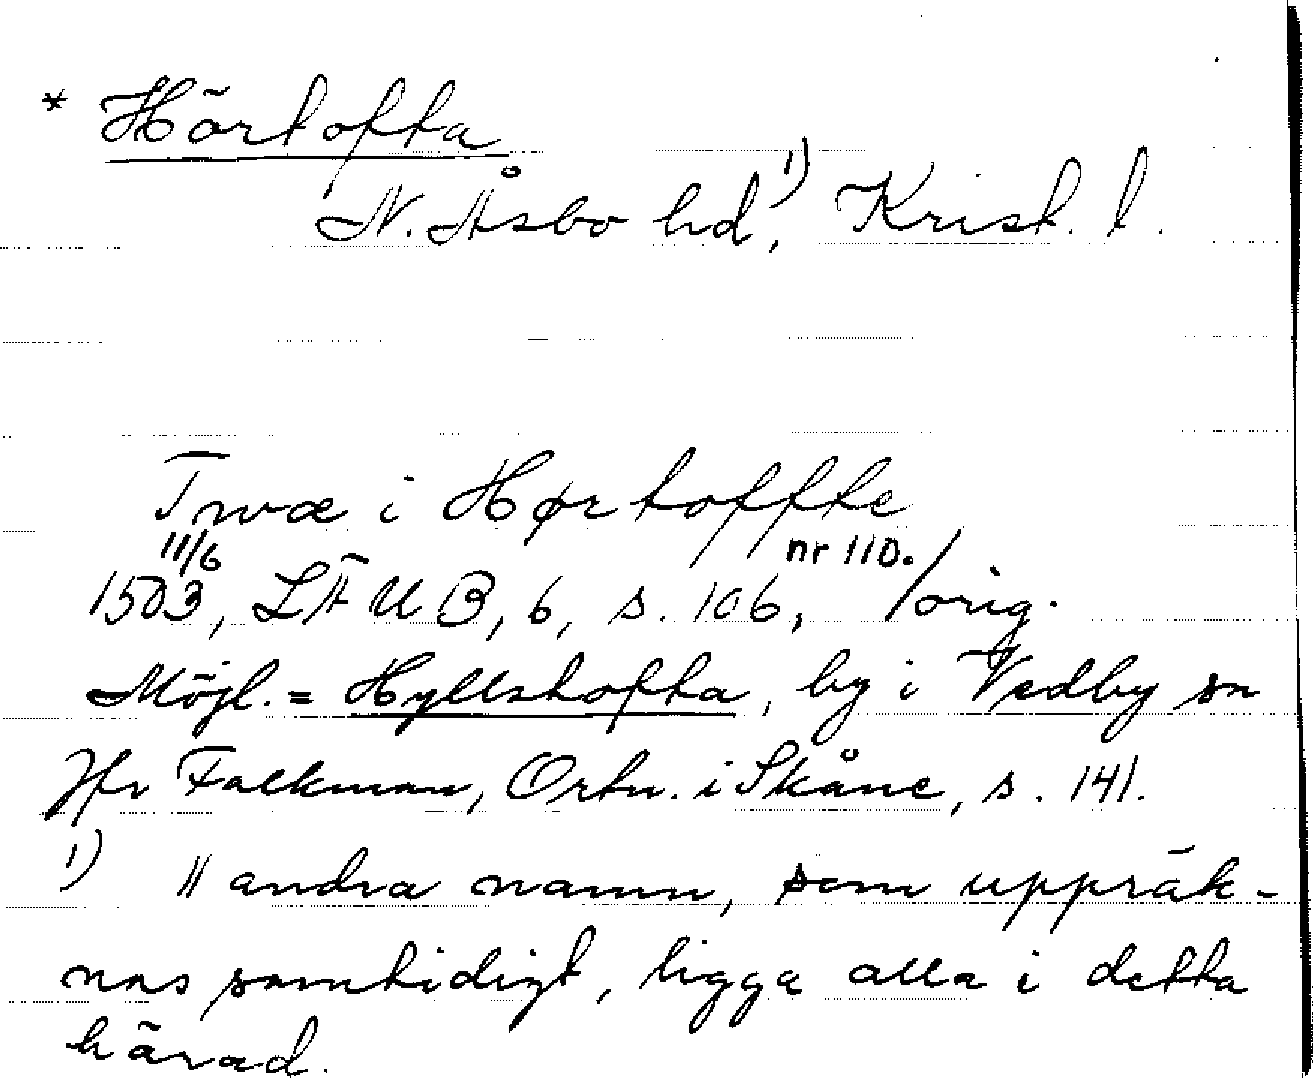 * Hörtofta
N. Åsbo hd,¹⁾ Krist. l.
Twæ i Hørtoffte
11/6 nr 110.
1503, LÄUB, 6, s. 106, /orig.
Möjl. = Hyllstofta, by i Vedby sn
Jfr Falkman, Ortn. i Skåne, s. 141.
1) 11 andra namn, som uppräk-
nas samtidigt, ligga alla i detta
härad.